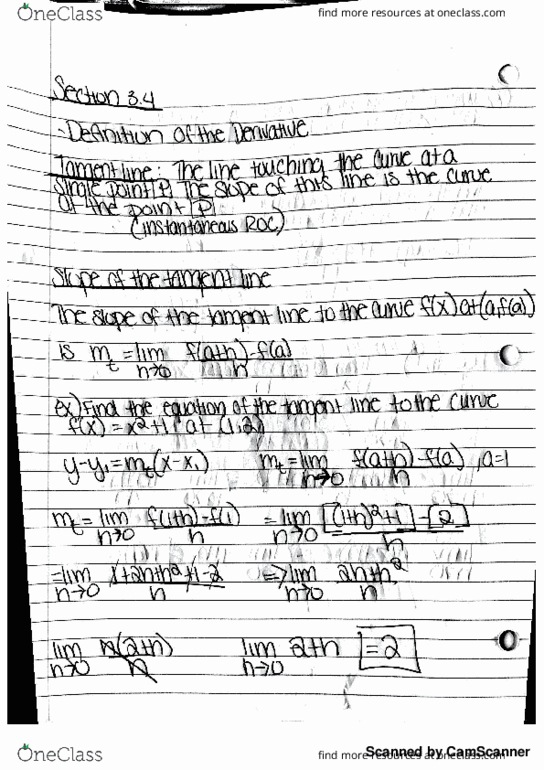 OneClass
find more resources at oneclass.com
Section 3.4
- Definition of the Derivative
Tangent line: The line touching the curve at a
single point P. The slope of this line is the curve
of the point P
(instantaneous ROC)
Slope of the tangent line
The slope of the tangent line to the curve f(x) at (a,f(a))
is m_t = lim h→0 f(a+h)-f(a) / h
ex) Find the equation of the tangent line to the curve
f(x) = x²+1 at (1,2)
y-y₁=m_t(x-x₁) m_t = lim h→0 f(a+h)-f(a) / h , a=1
m_t = lim h→0 f(1+h)-f(1) / h = lim h→0 [(1+h)²+1]-[2] / h
= lim h→0 1+2h+h²+1-2 / h => lim h→0 2h+h² / h
lim h→0 h(2+h) / h lim h→0 2+h = 2
OneClass
find more resources at oneclass.com
Scanned by CamScanner